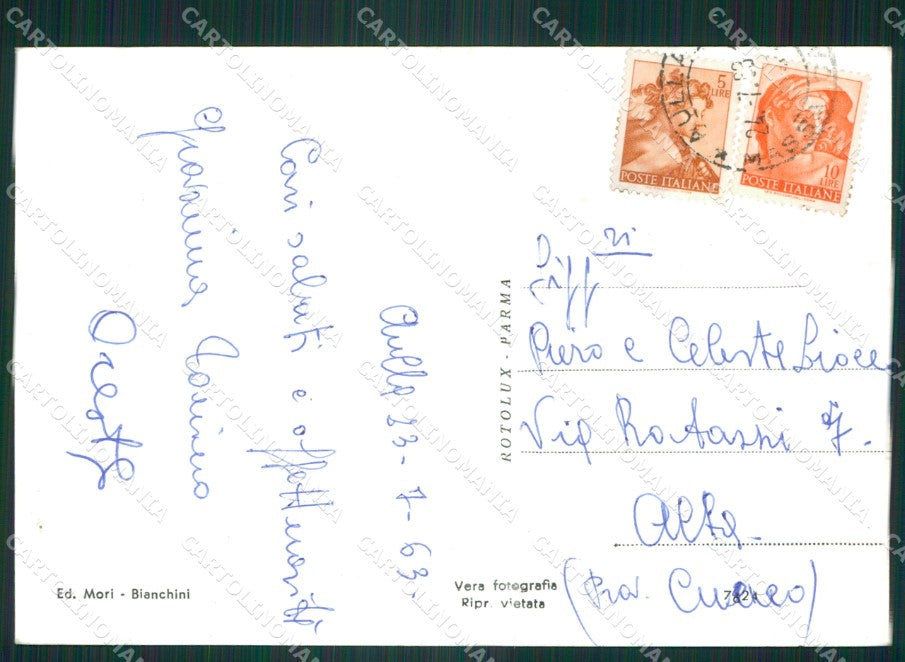 Aulla 23-7-63.
Cari saluti e
Oreste
Ed. Mori - Bianchini
Vera fotografia
Ripr. vietata
ROTOLUX - PARMA
5
LIRE
POSTE ITALIANE
10
LIRE
POSTE ITALIANE
AULLA
24-7-63
MASSA
Piero e Celeste
Via 7.
Alba
(Prov. Cuneo)
CARTOLINOMANIA